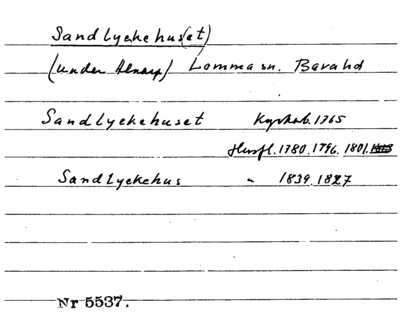 Sandlyckehus(et)
(under Alnarp) Lomma sn. Bara hd
Sandlyckehuset Kyrkob. 1765
Husfl. 1780. 1796. 1801.
Sandlyckehus " 1839. 1827
Nr 5537.